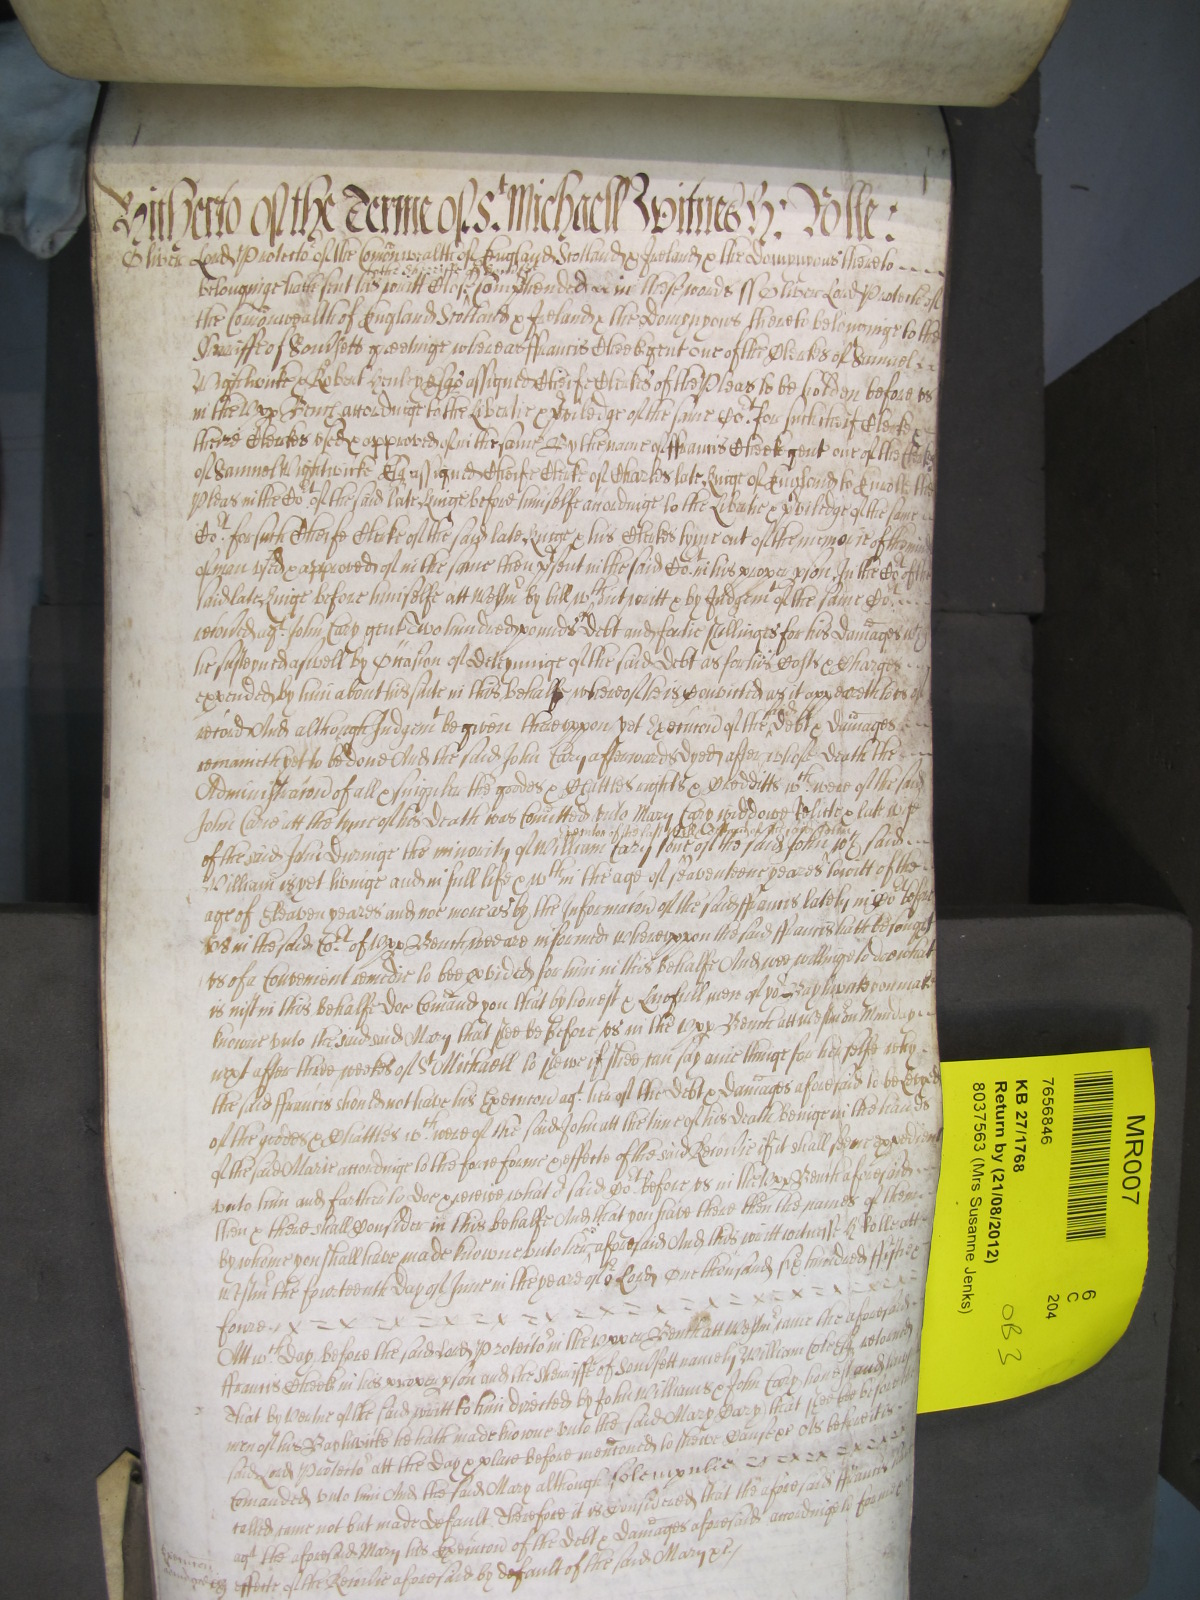 Hitherto of the Terme of St. Michaell Witnes H: Rolle:
Oliver Lord Protector of the Comonwealth of England Scotland & Ireland & the Dominyons thereto
belonginge hath sent his writt Close comprehended in these words ss Oliver Lord Protector of
the Comonwealth of England Scotland & Ireland & the Dominyons thereto belonginge to the
Shiriffe of Somsett greetinge whereas Francis Cheek gent one of the Clerkes of Samuel
Wightwicke & Robert Henley Esqrs assigned Cheife Clerkes of the Pleas to be holden before us
in the Upp Bench accordinge to the libertie & priviledge of the same Cort. for such cheif Clerke &
there Clerkes used & approved of in the same By the name of Francis Cheek gent one of the Clerkes
of Samuel Wightwicke Esq assigned Cheife Clerke of Charles late Kinge of England to Enrole the
Pleas in the Cort of the said late Kinge before himselfe accordinge to the Libertie & priviledge of the same
Cort. for such Cheife Clerke of the said late Kinge & his Clerkes tyme out of the memorie of
of man used & approved of in the same then psent in the said Cort in his proper pson In the Cort of the
said late Kinge before himselfe att Westm by bill wthout writt & by Judgemt of the same Cort.
recovred agt. John Cary gent Two hundred pounds Debt and fortie shillinges for his Damages wch
he susteyned aswell by occasion of Deteyninge of the said Debt as for his Costs & Charges
expended by him about his suite in this behalfe whereof he is convicted as it appeareth to us of
record And although Judgemt be given thereuppon yet Execucon of the said Debt & Damages
remaineth yet to be done And the said John Cary afterwards dyed after whose Death the
Administracon of all & singuler the goodes & Chattles rights & Creditts wch were of the said
John Carie att the tyme of his Death was comitted unto Mary Cary widdowe Relicte & late wife
of the said John Duringe the minority of William Cary sone of the said John wch said
William is yet livinge and in full life & wthin the age of seaventeene yeares to witt of the
age of Eleaven yeares and noe more as by the Informacon of the said Francis lately in Cort before
us in the said Cort of Upp Bench weeare informed Whereuppon the said Francis hath besought
us of a Convenient remedie to bee pvided for him in this behalfe And wee willinge to doe what
is iust in this behalfe Doe Comand you that by honest & lawfull men of yor Bayliwicke you make
knowne unto the said Mary that shee be before us in the Upp Bench att Westm on Munday
next after three weekes of St Michaell to shewe if shee can say anie thinge for her selfe why
the said Francis should not have his Execucon agt. her of the Debt & Damages aforesaid to be levyed
of the goodes & Chattles wch were of the said John att the time of his Death beinge in the handes
of the said Marie accordinge to the force forme & effecte of the said Recovrie if it shall seeme expedient
unto him and farther to Doe & receive what or said Cort before us in the Upp Bench aforesaid
then & there shall Consider in this behalfe And that you have there then the names of them
by whome you shall have made knowne unto her aforesaid And this writt witness H Rolle att
Westm the fourteenth Day of June in the yeare of or Lord One thousand six hundred fiftie &
fowre.
Att wch Day before the said Lord Protector in the upper Bench att Westm came the aforesaid
Francis Cheek in his proper pson and the Sheriffe of Somsett namely William returned
That by vertue of the said writt to him directed by John Williams & John Cary honest and lawfull
men of his Bayliwicke he hath made knowne unto the said Mary Cary that shee be before the
said Lord Protector att the Day & place before mentioned to shewe Cause &c As before it is
Comanded unto him And the said Mary although solempnlie
called came not but made default Therefore it is Considered that the aforesaid Francis have
agt the aforesaid Mary his Execucon of the Debt & Damages aforesaid accordinge to forme &
effecte of the Recovrie aforesaid by default of the said Mary &c
MR007
7656846
KB 27/1768
Return by (21/08/2012)
8037563 (Mrs Susanne Jenks)
6
C
204
OB 3